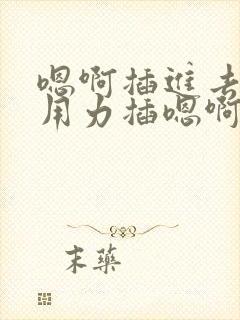 嗯啊插进去
用力插嗯啊
末药